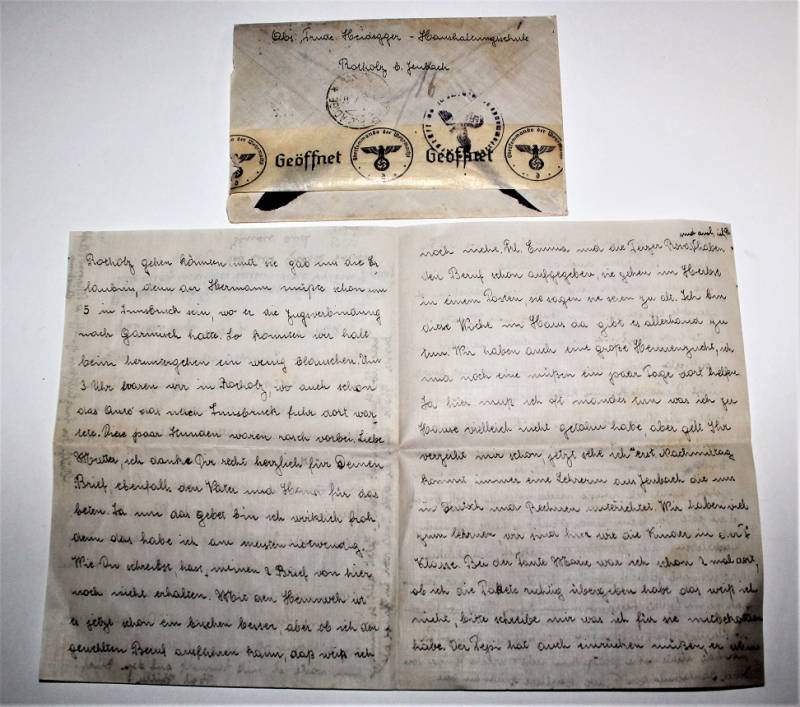 Abs. Trude Heidegger - Haushaltungsschule
Rotholz b. Jenbach
16
Geöffnet
Geöffnet
Oberkommando der Wehrmacht
Oberkommando der Wehrmacht
Oberkommando der Wehrmacht
Rotholz gehen können und sie gab uns die Er
laubnis, denn der Hermann mußte schon um
5 in Innsbruck sein, wo er die Zugsverbindung
nach Garmisch hatte. So konnten wir halt
beim heruntergehen ein wenig plauschen. Um
3 Uhr waren wir in Rotholz, wo auch schon
das Auto das nach Innsbruck fuhr dort war
tete. Diese paar Stunden waren rasch vorbei. Liebe
Mutter, ich danke Dir recht herzlich für Deinen
Brief, ebenfalls den Vater und Hansl für das
beten. Ja um das Gebet bin ich wirklich froh,
denn das habe ich am meisten notwendig.
Wie Du schreibst, hast, meinen 2 Brief von hier
noch nicht erhalten. Mit den Heimweh ist
es jetzt schon ein bischen besser, aber ob ich den
gewählten Beruf ausführen kann, daß weiß ich
und auch
noch nicht. Frl. Emma und die haben
den Beruf schon aufgegeben, sie gehen im Herbst
in einem Posten, so sagen sie seien zu alt. Ich bin
diese Woche im Haus da gibt es allerhand zu
tun. Wir haben auch eine große Hennenzucht, ich
und noch eine müßen ein paar Tage dort helfen
Ja hier muß ich oft manches tun was ich zu
Hause vielleich nicht getan habe, aber gelt Ihr
verzeiht mir schon, jetzt sehe ich's erst. Nachmittag
kommt immer eine Lehrerin aus Jenbach die uns
in Deutsch und Rechnen unterichtet. Wir haben viel
zum lehrnen wir sind hier wie die Kinder in der
Klasse. Bei der Tante Marie war ich schon 2 mal dort,
ob ich die Pakete richtig übergeben habe das weiß ich
nicht, bitte schreibe mir was ich für sie mitbekommen
habe. Der Pepi hat auch einrücken müßen, er